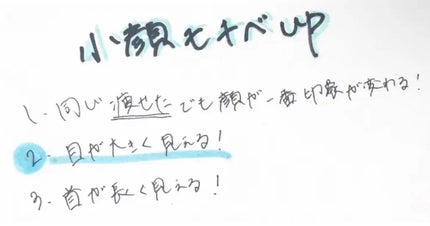 小顔モチベup
1. 同じ痩せたでも顔が一番印象が変わる！
2. 目が大きく見える！
3. 首が長く見える！